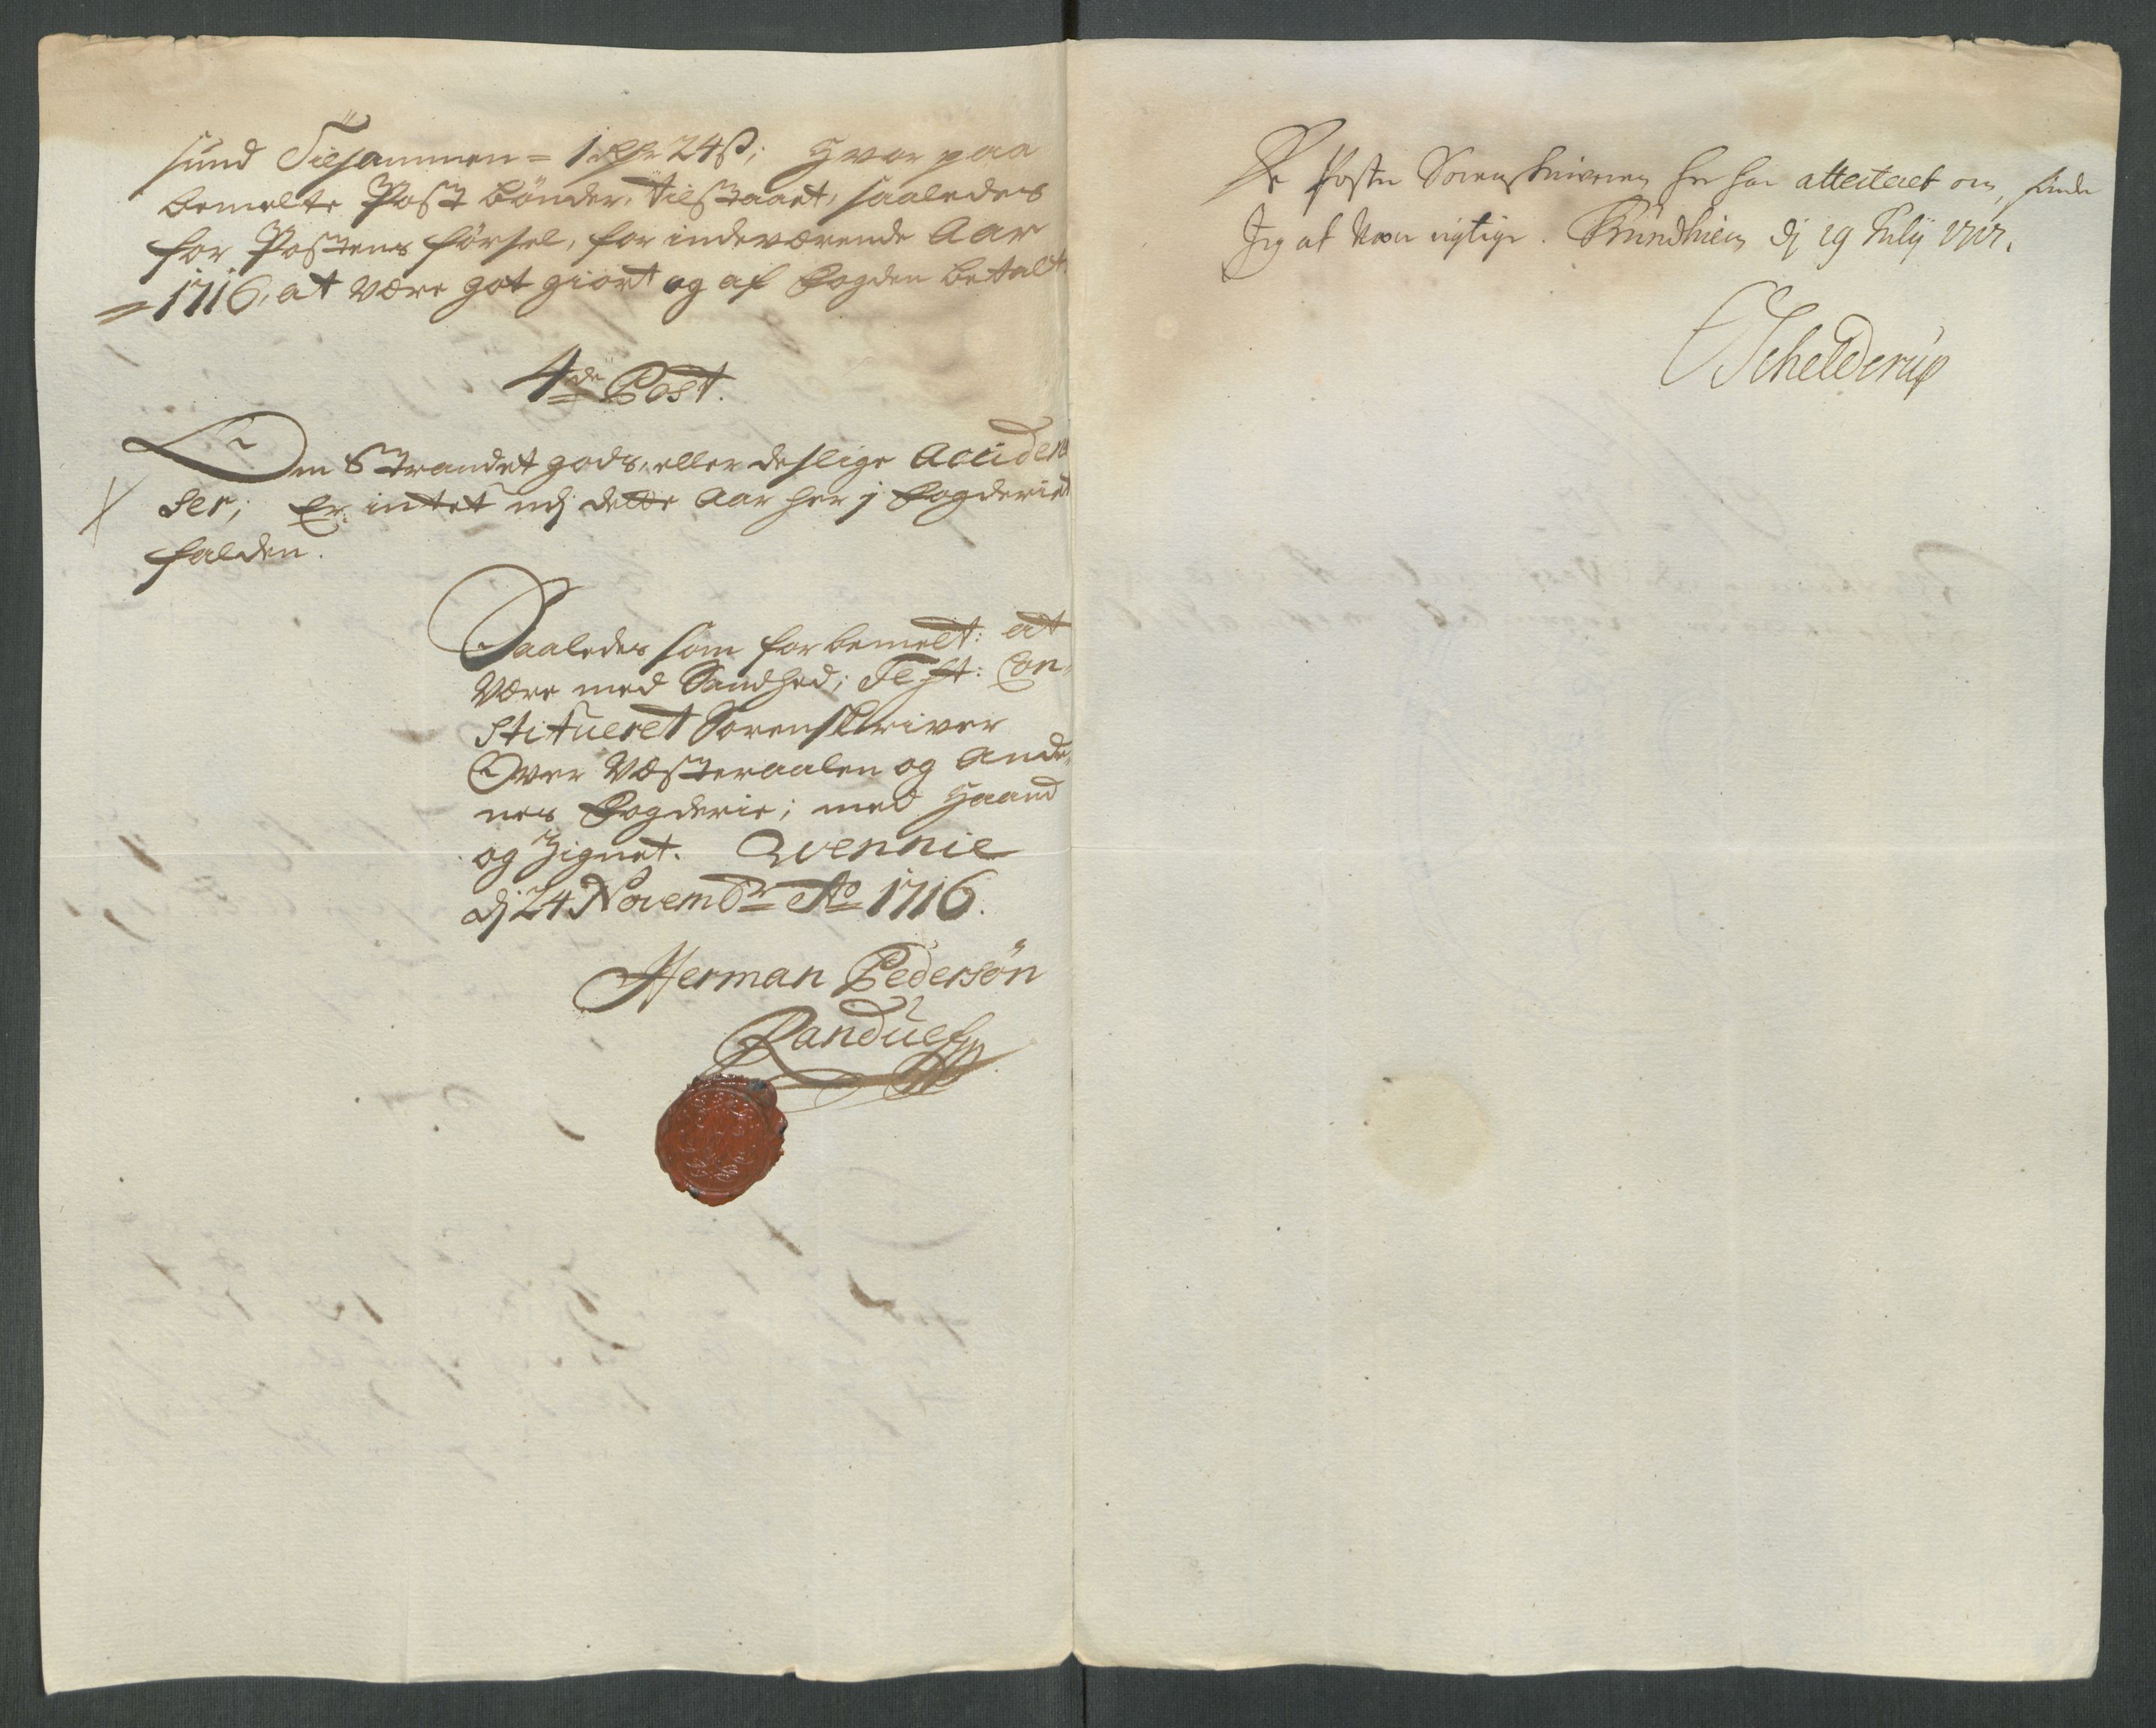 sund Tilsammen = 1 rdr 24 ß; Hvor paa
bemelte Post bønder, tilstaaet, saaledes
for Postens førsel, for indeværende Aar
= 1716, at være got giort og af Fogden betalt.
4de Post.
Om Strandet gods, eller deslige Accidens
ser; Er intet udj dette Aar her j Fogderiet
falden.
Saaledes som forbemelt: at
være med Sandhed; Test: Con,
stitueret Sorenskriver
Over Væsteraalen og Ande,
nes Fogderie; med Haand
og Zignet. Qvennie
dj 24 Novembr Ao 1716.
Herman Pedersøn
Randulf
De Poster Sorenskriveren her har attesteret om, finder
Jeg at være rigtige. Trundhiem dj 19 Julij 1717.
Schelderup